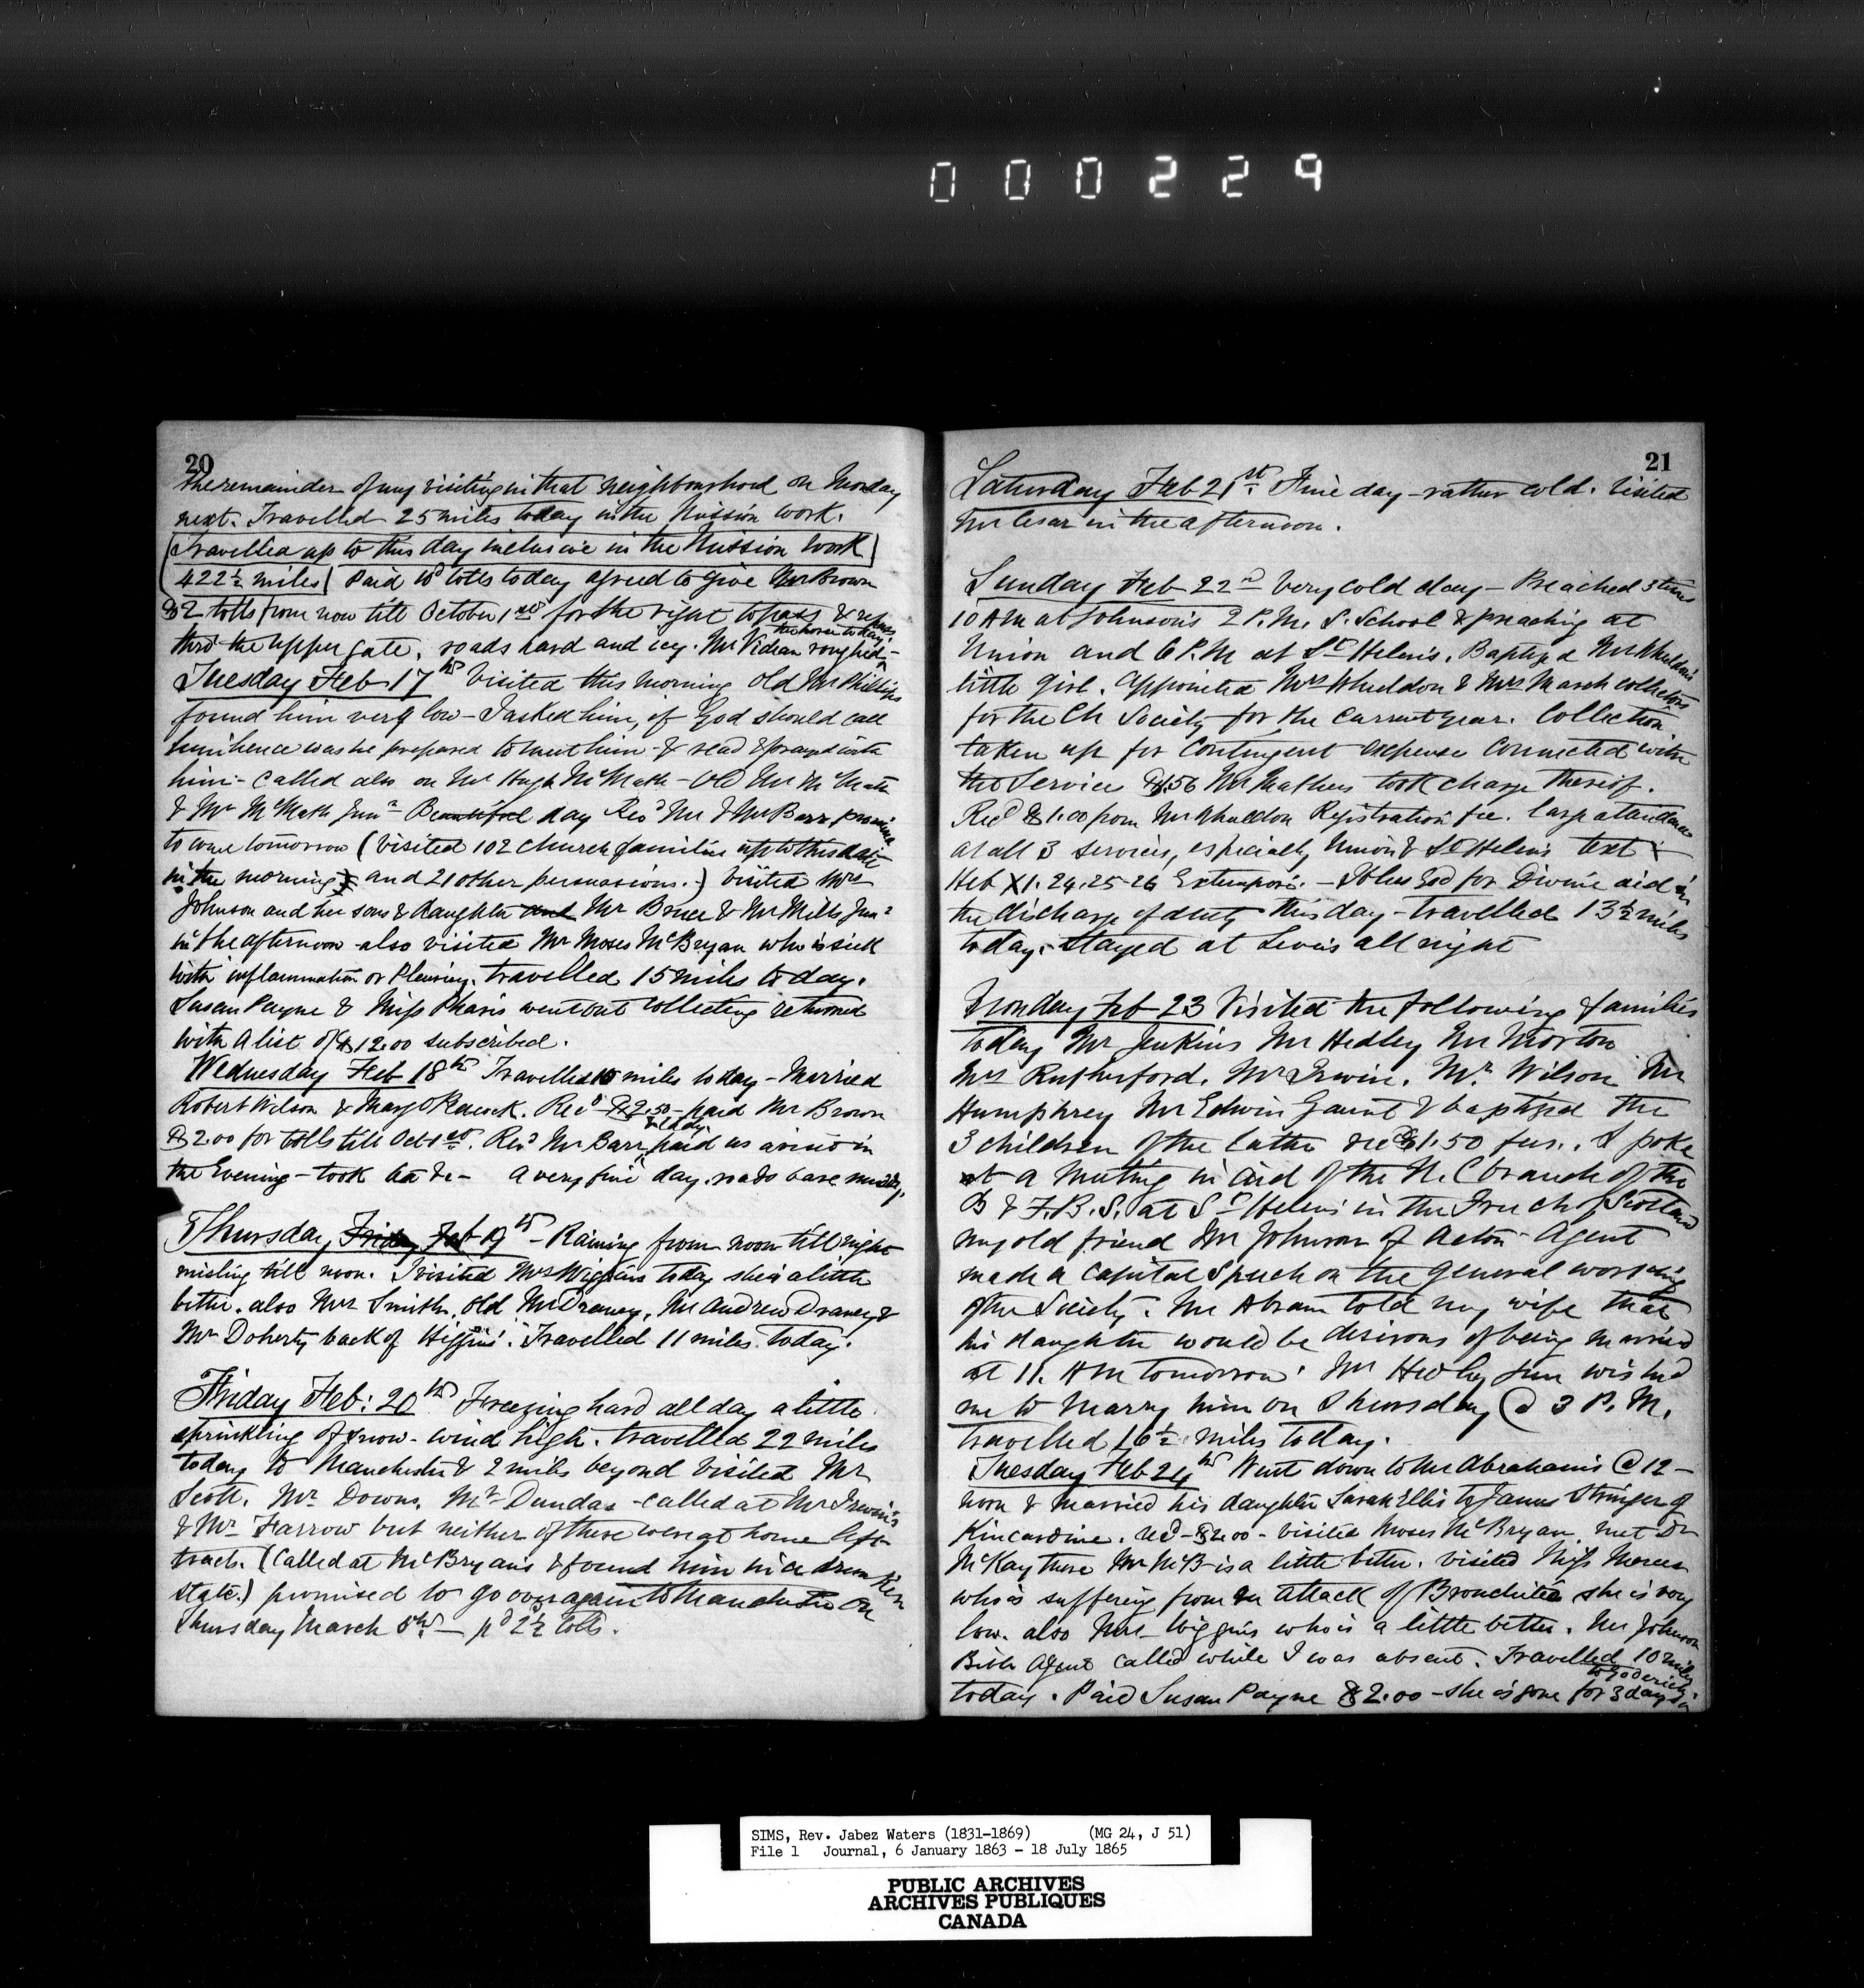 000229
20
the remainder of my visiting in that neighbourhood on Monday
next. Travelled 25 miles today in the Mission work.
Travelled up to this day inclusive in the Mission work
422½ miles Paid tolls today agreed to give Mr Brown
$2 tolls from now till October 1st for the right to pass &
thro' the upper gate. roads hard and icy. Mr Videan roughed
the horse today.
Tuesday Feb 17th Visited this morning old Mr Phillips
found him very low - I asked him, if God should call
him hence was he prepared to meet him - & read & prayed with
him - Called also on Mr Hugh McMath - Old Mr McMath
& Mr McMath Junr Beautiful day Revd Mr & Mrs Barr promise
to come tomorrow (Visited 102 Church families up to this date
in the morning and 21 other persuasions.) Visited Mrs
Johnson and her sons & daughter and Mr Bruce & Mr Mills Junr
in the afternoon - also visited Mr Moses McBryan who is sick
with inflammation or Pleurisy. travelled 15 miles today.
Susan Payne & Miss Pharis went out collecting returned
with a list of $12.00 subscribed.
Wednesday Feb 18th Travelled 15 miles today - Married
Robert Wilson & Mary Peacock. Recd $2.50 - paid Mr Brown
$2.00 for tolls till Oct 1st. Revd Mr Barr & lady paid us a visit in
the Evening - took tea &c - a very fine day. roads bare
Thursday Friday Feb 19th - Raining from noon till night
misling till noon. I visited Mrs Wiggins today she is a little
better. also Mrs Smith, old Mr Draney, Mr Andrew Draney &
Mr Doherty back of Higgins'. Travelled 11 miles today.
Friday Feb: 20th Freezing hard all day a little
sprinkling of snow - wind high. travelled 22 miles
today to Manchester & 2 miles beyond Visited Mr
Scott, Mr Downs, Mr Dundas - called at Mr Irwin's
& Mr Farrow but neither of these were at home left
tracts. (Called at McBryan's & found him in a drunken
state.) promised to go over again to Manchester on
Thursday March 5th - pd 2½ tolls.
21
Saturday Feb 21st. Fine day - rather cold. Visited
Mr Cesar in the afternoon.
Sunday Feb 22nd Very cold day - Preached 3 times
10 AM at Johnson's 2 P.M. S. School & preaching at
Union and 6 P.M at St Helens. Baptized Mr Wheldon's
little girl. Appointed Mrs Wheldon & Mrs March collectors
for the Ch Society for the current year. Collection
taken up for Contingent expense connected with
the Service $1.56 Mr Mathers took charge thereof.
Recd $1.00 from Mr Wheldon Registration fee. large attendance
at all 3 services, especially Union & St Helens text
Heb XI. 24.25-26 Extempore. - I bless God for Divine aid in
the discharge of duty this day - travelled 13½ miles
today. Stayed at Levi's all night
Monday Feb 23 Visited the following families
today Mr Jenkins Mr Hedley Mr Morton
Mrs Rutherford. Mr Irwin. Mr Wilson Mr
Humphrey Mr Edwin Gaunt & baptized the
3 children of the latter recd $1.50 fees. Spoke
at a Meeting in aid of the U. C branch of the
B & F. B. S. at St Helens in the Free Ch of Scotland
my old friend Mr Johnson of Acton - Agent
made a capital Speech on the general working
of the Society. Mr Abram told my wife that
his daughter would be desirous of being married
at 11. AM tomorrow. Mr Hedley Jun wished
me to marry him on Thursday @ 3 P. M.
travelled 16½ miles today.
Tuesday Feb 24th Went down to Mr Abraham's @ 12 -
noon & married his daughter Sarah Ellis to James Stringer of
Kincardine. recd - $2.00 - visited Moses McBryan, met Dr
McKay there Mr McB - is a little better. visited Miss
who is suffering from an attack of Bronchitis she is very
low. also Mrs Wiggins who is a little better. Mr Johnson
Bible Agent called while I was absent. Travelled 10 miles
today. Paid Susan Payne $2.00 - she is gone for 3 days
to Goderich
SIMS, Rev. Jabez Waters (1831-1869) (MG 24, J 51)
File 1 Journal, 6 January 1863 - 18 July 1865
PUBLIC ARCHIVES
ARCHIVES PUBLIQUES
CANADA